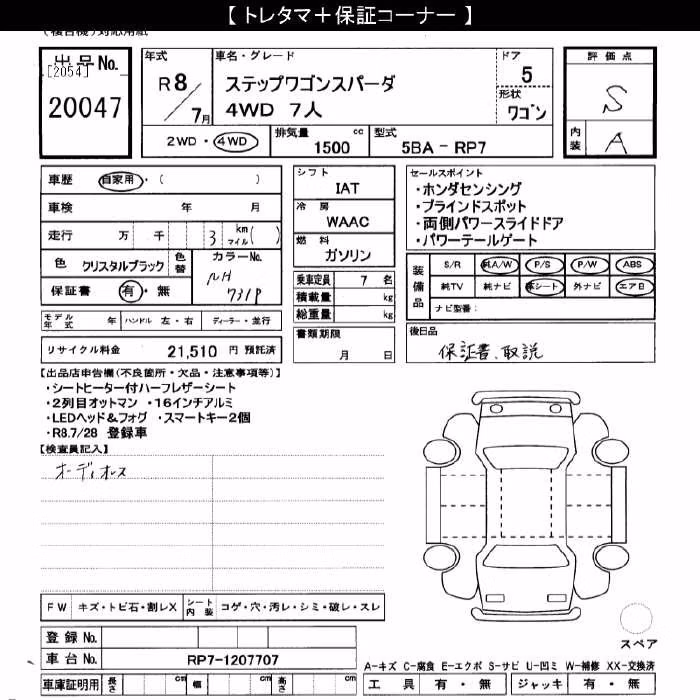 【 トレタマ＋保証コーナー 】
(複合機)対応用紙
出品No.
[2054]
20047
年式
R8
7月
車名・グレード
ステップワゴンスパーダ
4WD 7人
ドア
5
形状
ワゴン
評価点
S
内装
A
2WD・4WD
排気量
1500 cc
型式
5BA - RP7
車歴 自家用・( )
車検 年 月
走行 万 千 3 km マイル ( )
色 クリスタルブラック 色替
カラーNo.
NH
731P
保証書 有・無
モデル年式 年 ハンドル 左・右 ディーラー・並行
リサイクル料金 21,510 円 預託済
シフト
IAT
冷房
WAAC
燃料
ガソリン
乗車定員 7 名
積載量 kg
総重量 kg
書類期限
月 日
セールスポイント
・ホンダセンシング
・ブラインドスポット
・両側パワースライドドア
・パワーテールゲート
装備品
S/R 純A/W P/S P/W ABS
純TV 純ナビ 革シート 外ナビ エアB
ナビ型番:
後日品
保証書、取説
【出品店申告欄(不良箇所・欠品・注意事項等)】
・シートヒーター付ハーフレザーシート
・2列目オットマン ・16インチアルミ
・LEDヘッド&フォグ ・スマートキー2個
・R8.7/28 登録車
【検査員記入】
オーディオレス
FW キズ・トビ石・割レX シート内装 コゲ・穴・汚レ・シミ・破レ・スレ
登録No.
車台No. RP7-1207707
車庫証明用 長さ cm 幅 cm 高さ cm
スペア
A-キズ C-腐食 E-エクボ S-サビ U-凹ミ W-補修 XX-交換済
工具 有・無 ジャッキ 有・無